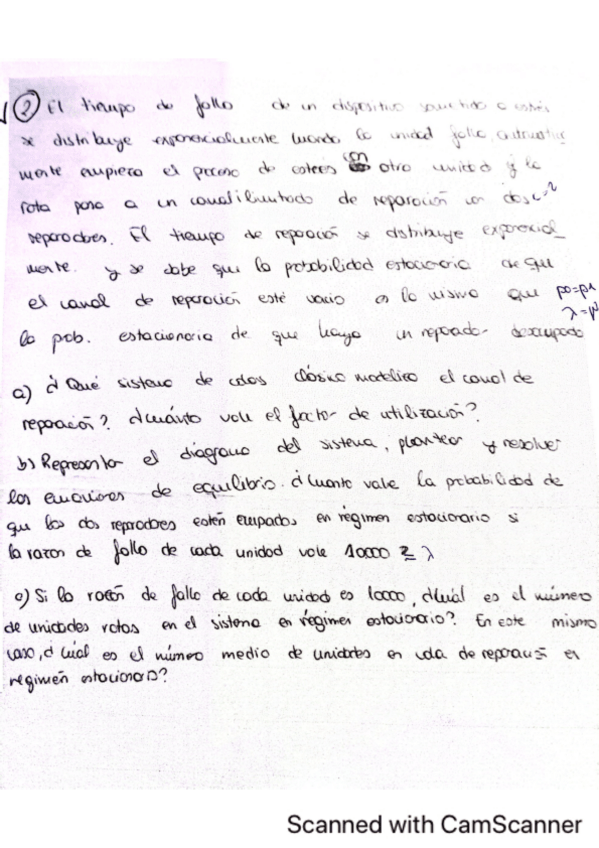 ② El tiempo de fallo de un dispositivo sometido a estrés
se distribuye exponencialmente cuando la unidad falla, automática
mente empieza el proceso de estrés en otra unidad y la
rota pasa a un canal ilimitado de reparación con dos c=2
reparadores. El tiempo de reparación se distribuye exponencial_
mente. y se sabe que la probabilidad estacionaria de que
el canal de reparación esté vacío es la misma que p0=p1
la prob. estacionaria de que haya un reparador desocupado λ=μ
a) ¿Qué sistema de colas clásico modeliza el canal de
reparación? ¿Cuánto vale el factor de utilización?
b) Representar el diagrama del sistema, plantear y resolver
las ecuaciones de equilibrio. ¿Cuanto vale la probabilidad de
que los dos reparadores estén ocupados en régimen estacionario si
la razon de fallo de cada unidad vale 10000 = λ
c) Si la razón de fallo de cada unidad es 10000, ¿Cuál es el número
de unidades rotas en el sistema en régimen estacionario?. En este mismo
caso, ¿cuál es el número medio de unidades en cola de reparación en
régimen estacionario?
Scanned with CamScanner